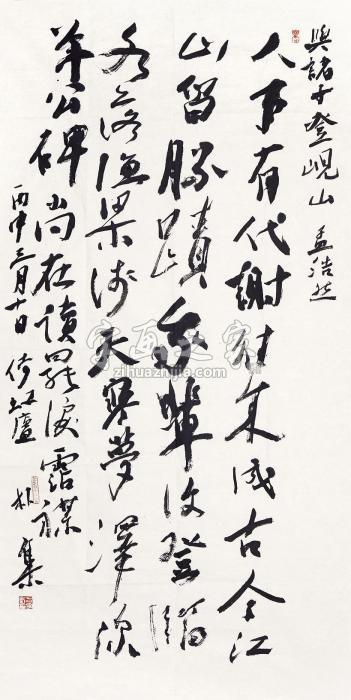 與諸子登峴山 孟浩然
人事有代謝往來成古今江
山留勝蹟我輩復登臨
水落漁梁淺天寒夢澤深
羊公碑尚在讀罷淚霑襟
丙申三月十日
集
字画之家
www.zihuazhijia.com